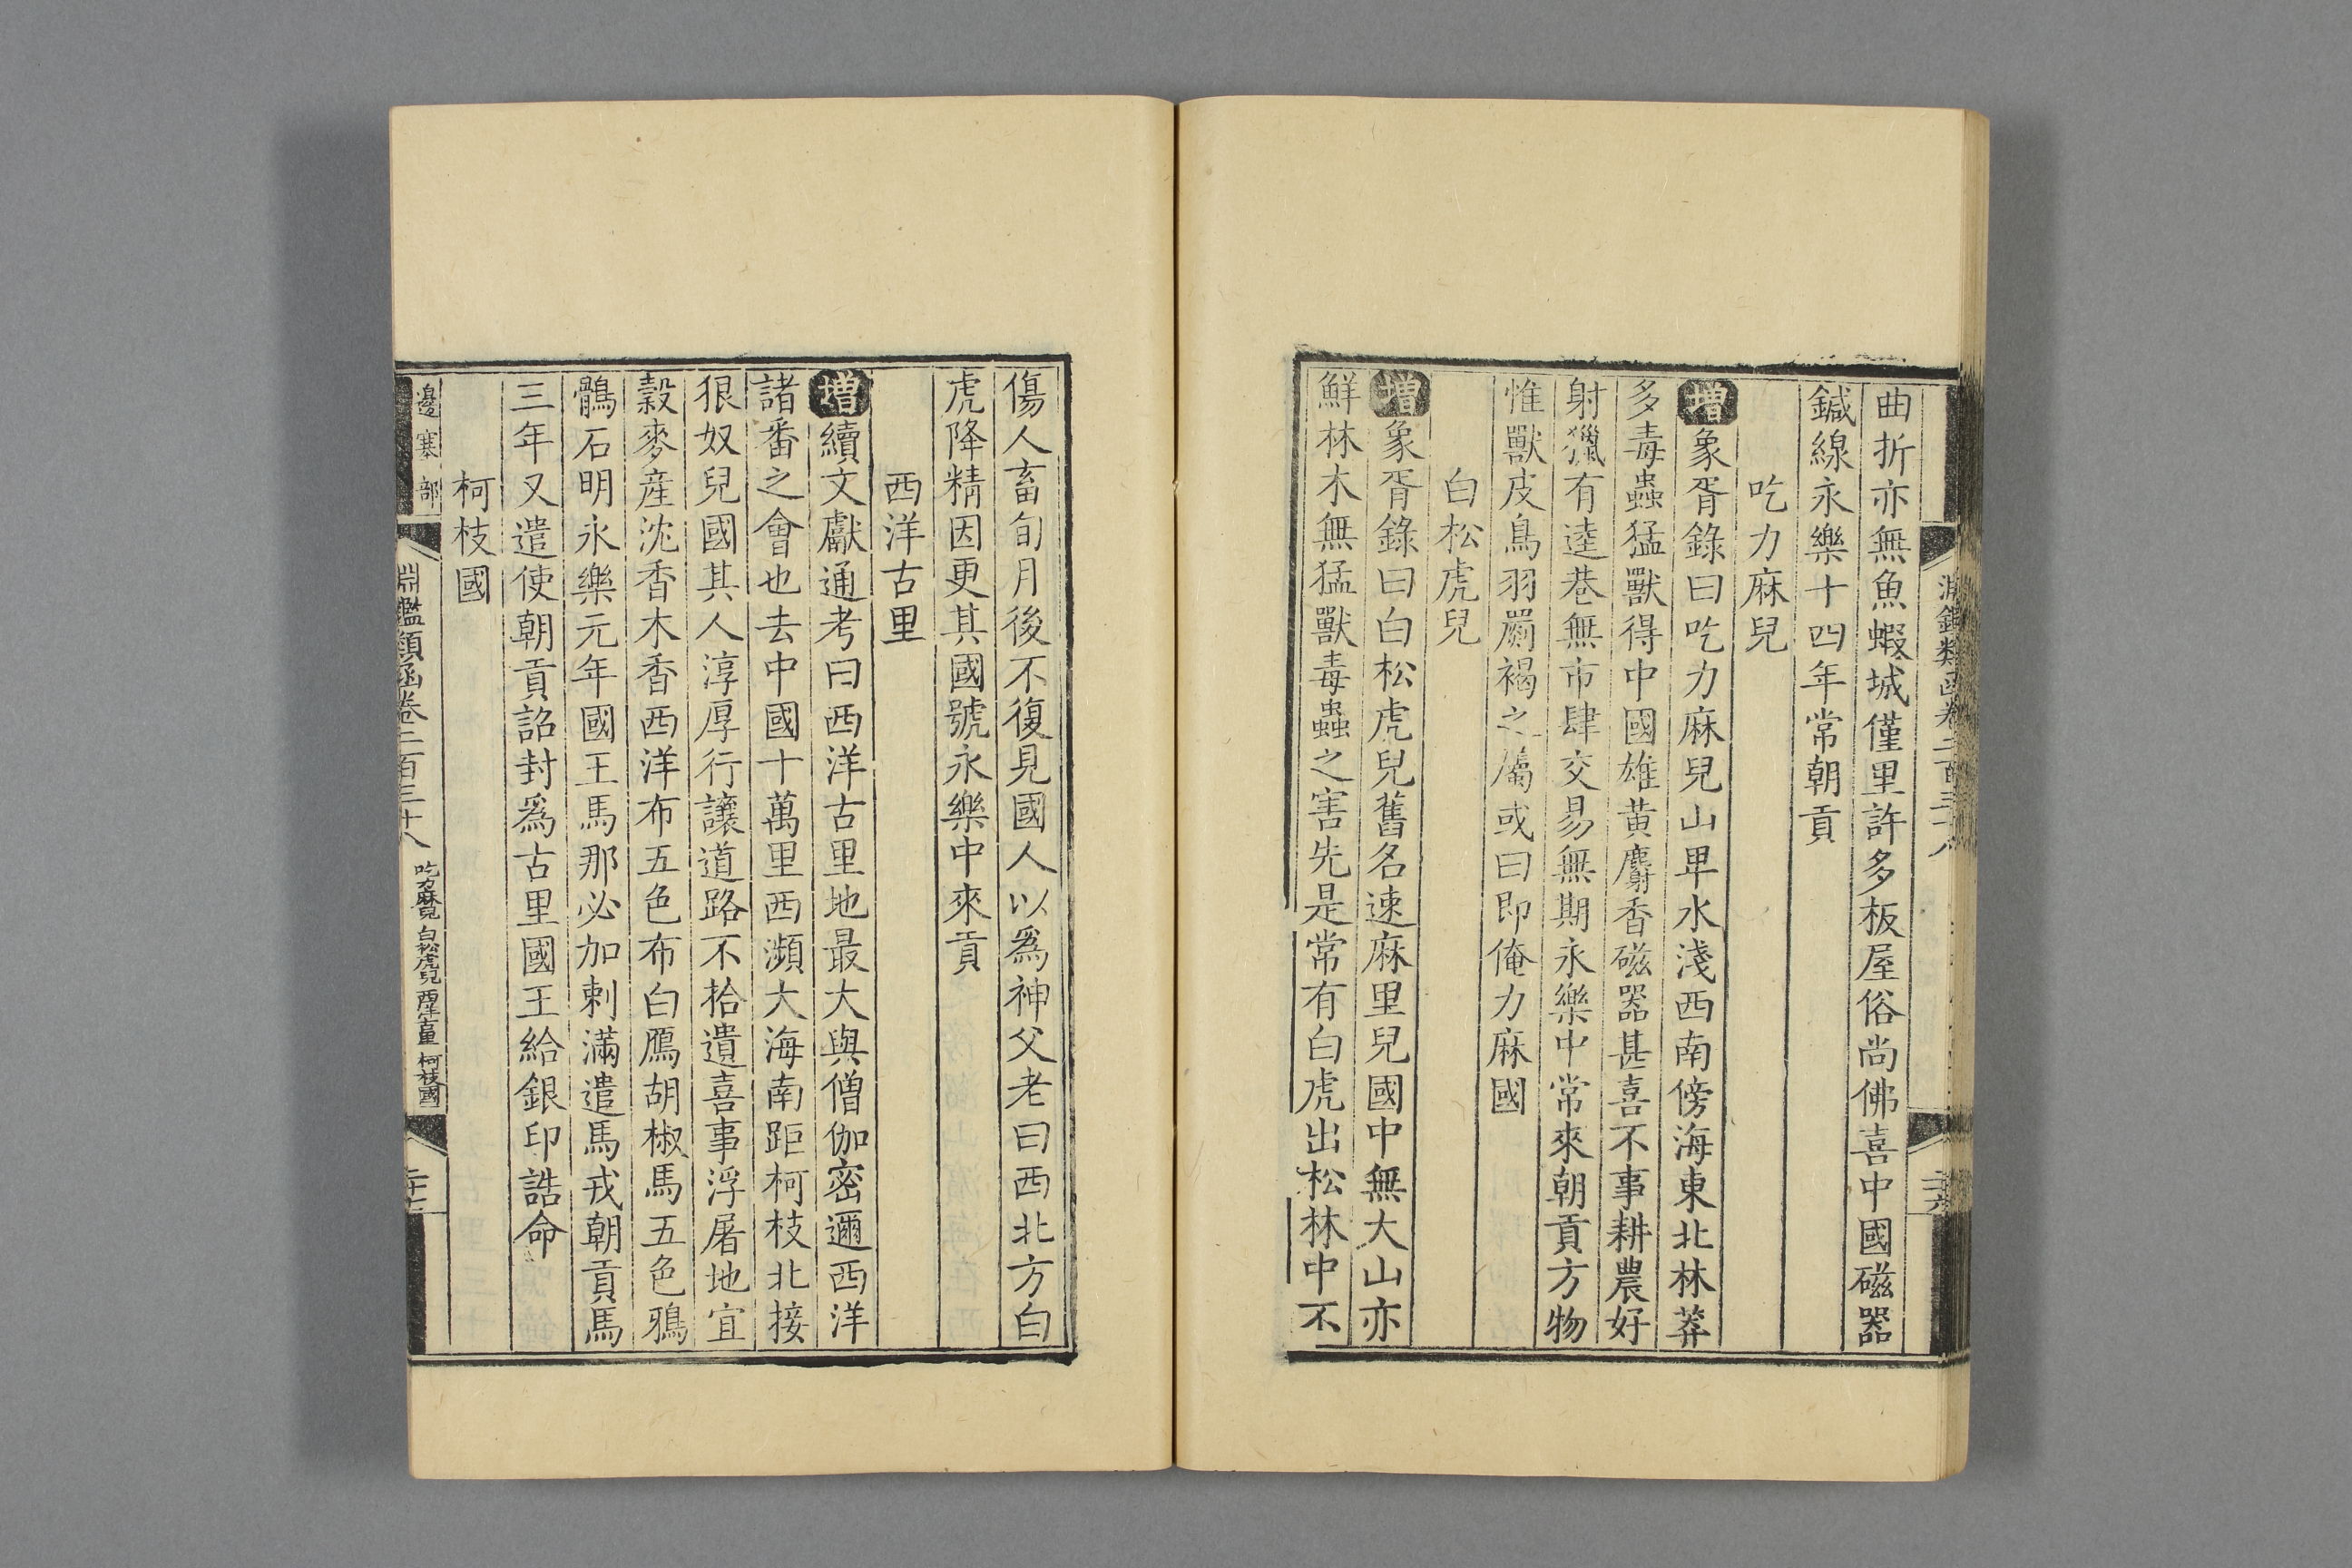 淵鑑類函卷二百三十八
二十六
曲折亦無魚蝦城僅里許多板屋俗尚佛喜中國磁器
鍼線永樂十四年常朝貢
吃力麻兒
增象胥錄曰吃力麻兒山卑水淺西南傍海東北林莽
多毒蟲猛獸得中國雄黃麝香磁器甚喜不事耕農好
射獵有逵巷無市肆交易無期永樂中常來朝貢方物
惟獸皮鳥羽罽褐之屬或曰即俺力麻國
白松虎兒
增象胥錄曰白松虎兒舊名速麻里兒國中無大山亦
鮮林木無猛獸毒蟲之害先是常有白虎出松林中不
傷人畜旬月後不復見國人以爲神父老曰西北方白
虎降精因更其國號永樂中來貢
西洋古里
增續文獻通考曰西洋古里地最大與僧伽密邇西洋
諸番之會也去中國十萬里西瀕大海南距柯枝北接
狠奴兒國其人淳厚行讓道路不拾遺喜事浮屠地宜
穀麥產沈香木香西洋布五色布白鴈胡椒馬五色鴉
鶻石明永樂元年國王馬那必加剌滿遣馬戎朝貢馬
三年又遣使朝貢詔封爲古里國王給銀印誥命
柯枝國
邊塞部
淵鑑類函卷二百三十八
吃力麻兒 白松虎兒 西洋古里 柯枝國
二十七